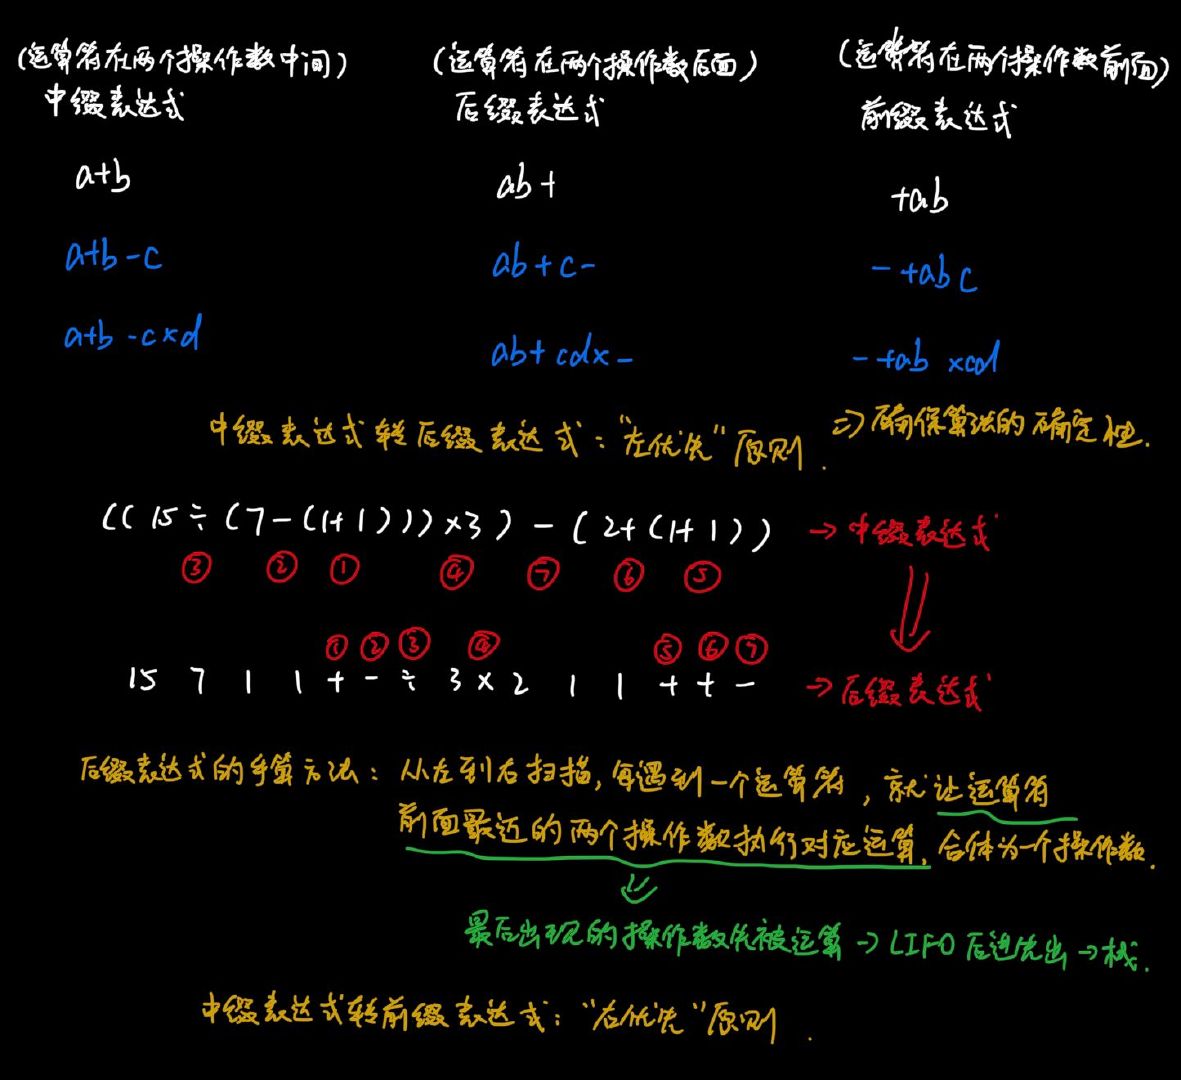 (运算符在两个操作数中间) (运算符在两个操作数后面) (运算符在两个操作数前面)
中缀表达式 后缀表达式 前缀表达式
a+b ab+ +ab
a+b-c ab+c- -+abc
a+b-c×d ab+cd×- -+ab×cd
中缀表达式转后缀表达式："左优先"原则. => 确保算法的确定性.
((15÷(7-(1+1)))×3)-(2+(1+1)) → 中缀表达式
③ ② ① ④ ⑦ ⑥ ⑤
① ② ③ ④ ⑤ ⑥ ⑦
15 7 1 1 + - ÷ 3 × 2 1 1 + + - → 后缀表达式
后缀表达式的手算方法：从左到右扫描,每遇到一个运算符，就让运算符
前面最近的两个操作数执行对应运算,合体为一个操作数.
最后出现的操作数先被运算 → LIFO 后进先出 → 栈.
中缀表达式转前缀表达式："右优先"原则.